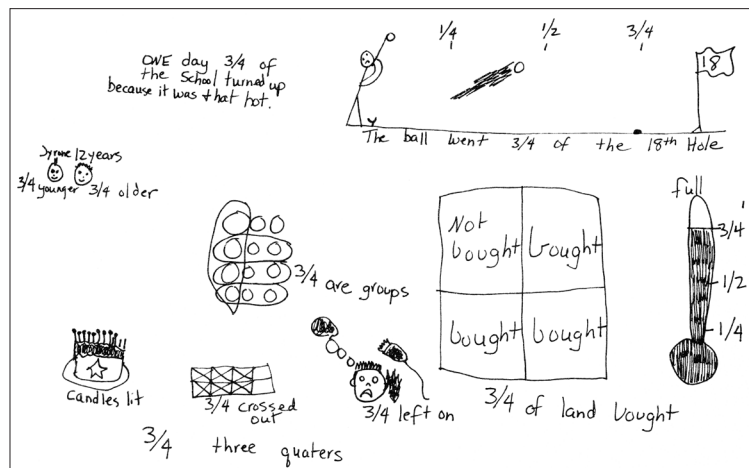 ONE day 3/4 of
the School turned up
because it was that hot.
1/4 1/2 3/4
18
The ball went 3/4 of the 18th Hole
Jyrone 12 years
3/4 younger 3/4 older
3/4 are groups
Not
bought
bought
bought
bought
3/4 of land bought
full
3/4
1/2
1/4
Candles lit
3/4 crossed
out
3/4 left on
3/4 three quaters